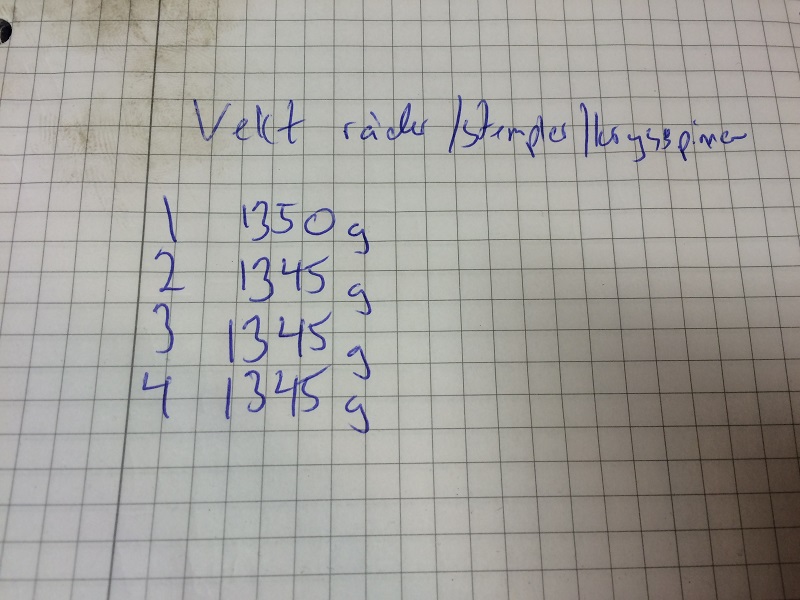 Vekt råder/stempler/krysspinner
1 1350 g
2 1345 g
3 1345 g
4 1345 g